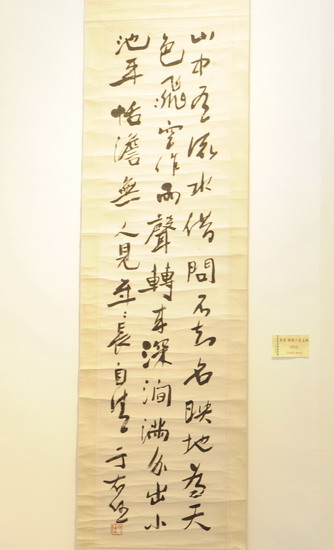 山中有流水借問不知名映地為天
色飛空作雨聲轉來深澗滿分出小
池平恬澹無人見年年長自清 于右任